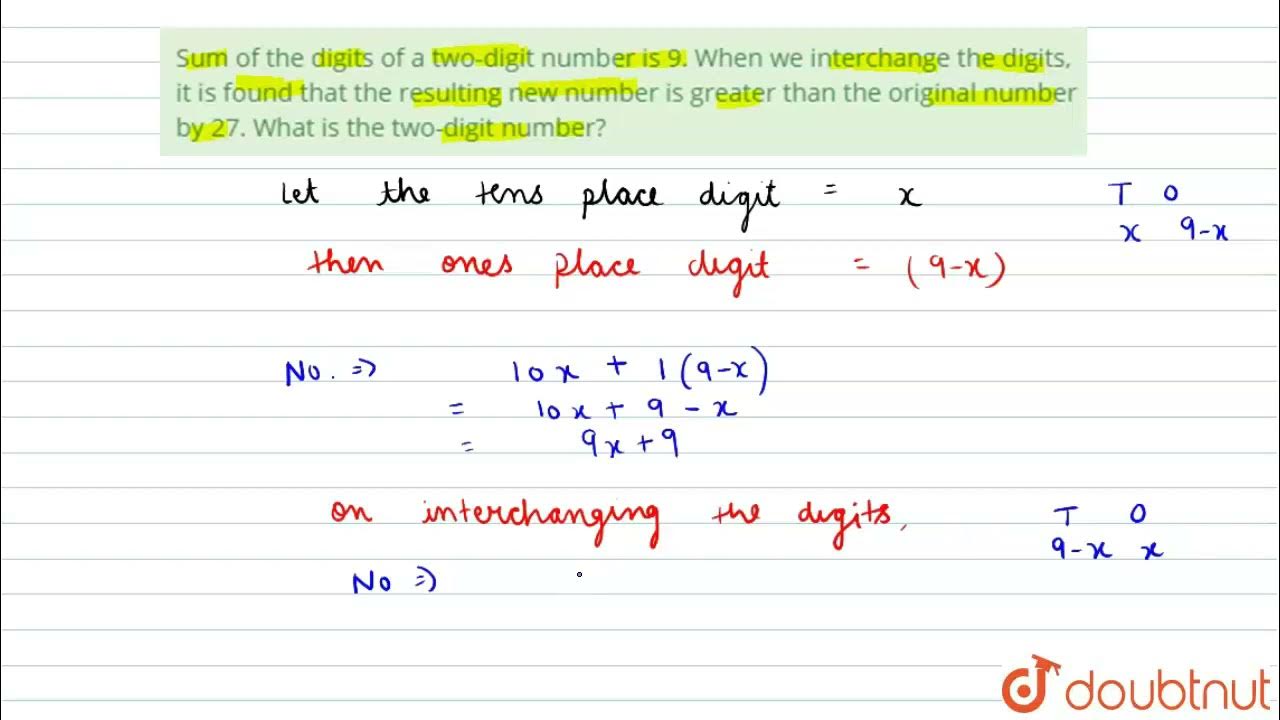 Sum of the digits of a two-digit number is 9. When we interchange the digits,
it is found that the resulting new number is greater than the original number
by 27. What is the two-digit number?
Let the tens place digit = x
T O
x 9-x
then ones place digit = (9-x)
No. ⇒ 10x + 1(9-x)
= 10x + 9 - x
= 9x + 9
on interchanging the digits,
T O
9-x x
No ⇒
doubtnut